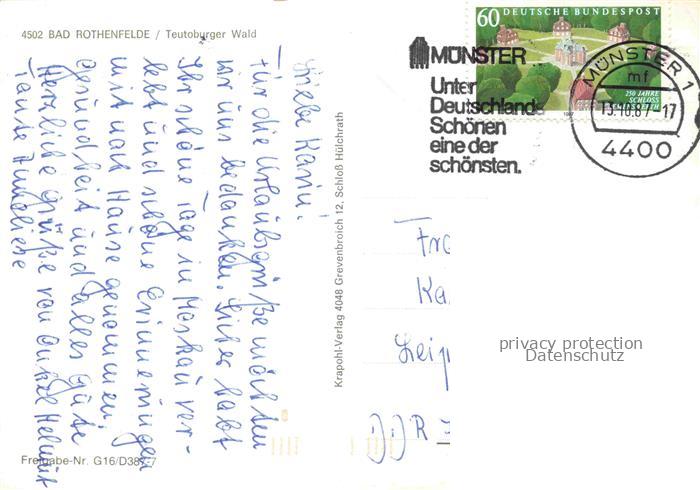 4502 BAD ROTHENFELDE / Teutoburger Wald
Liebe Karin!
Für die Urlaubsgrüße möchten
wir uns bedanken. Sicher habt
Ihr schöne Tage in Moskau ver-
lebt und schöne Erinnerungen
mit nach Hause genommen.
Gesundheit und alles Gute
Herzliche Grüße von Onkel Helmut
Tante
Freigabe-Nr. G16/D387-7
Krapohl-Verlag 4048 Grevenbroich 12, Schloß Hülchrath
60 DEUTSCHE BUNDESPOST
250 JAHRE
SCHLOSS
CLEMENSWERTH
1987
MÜNSTER
Unter
Deutschlands
Schönen
eine der
schönsten.
MÜNSTER 1
mf
13.10.87-17
4400
Fra
Ka
Leip
DDR
privacy protection
Datenschutz